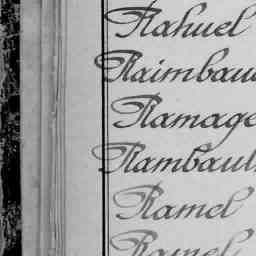 Rahuel
Raimbau
Ramage
Rambault
Ramel
Ramel